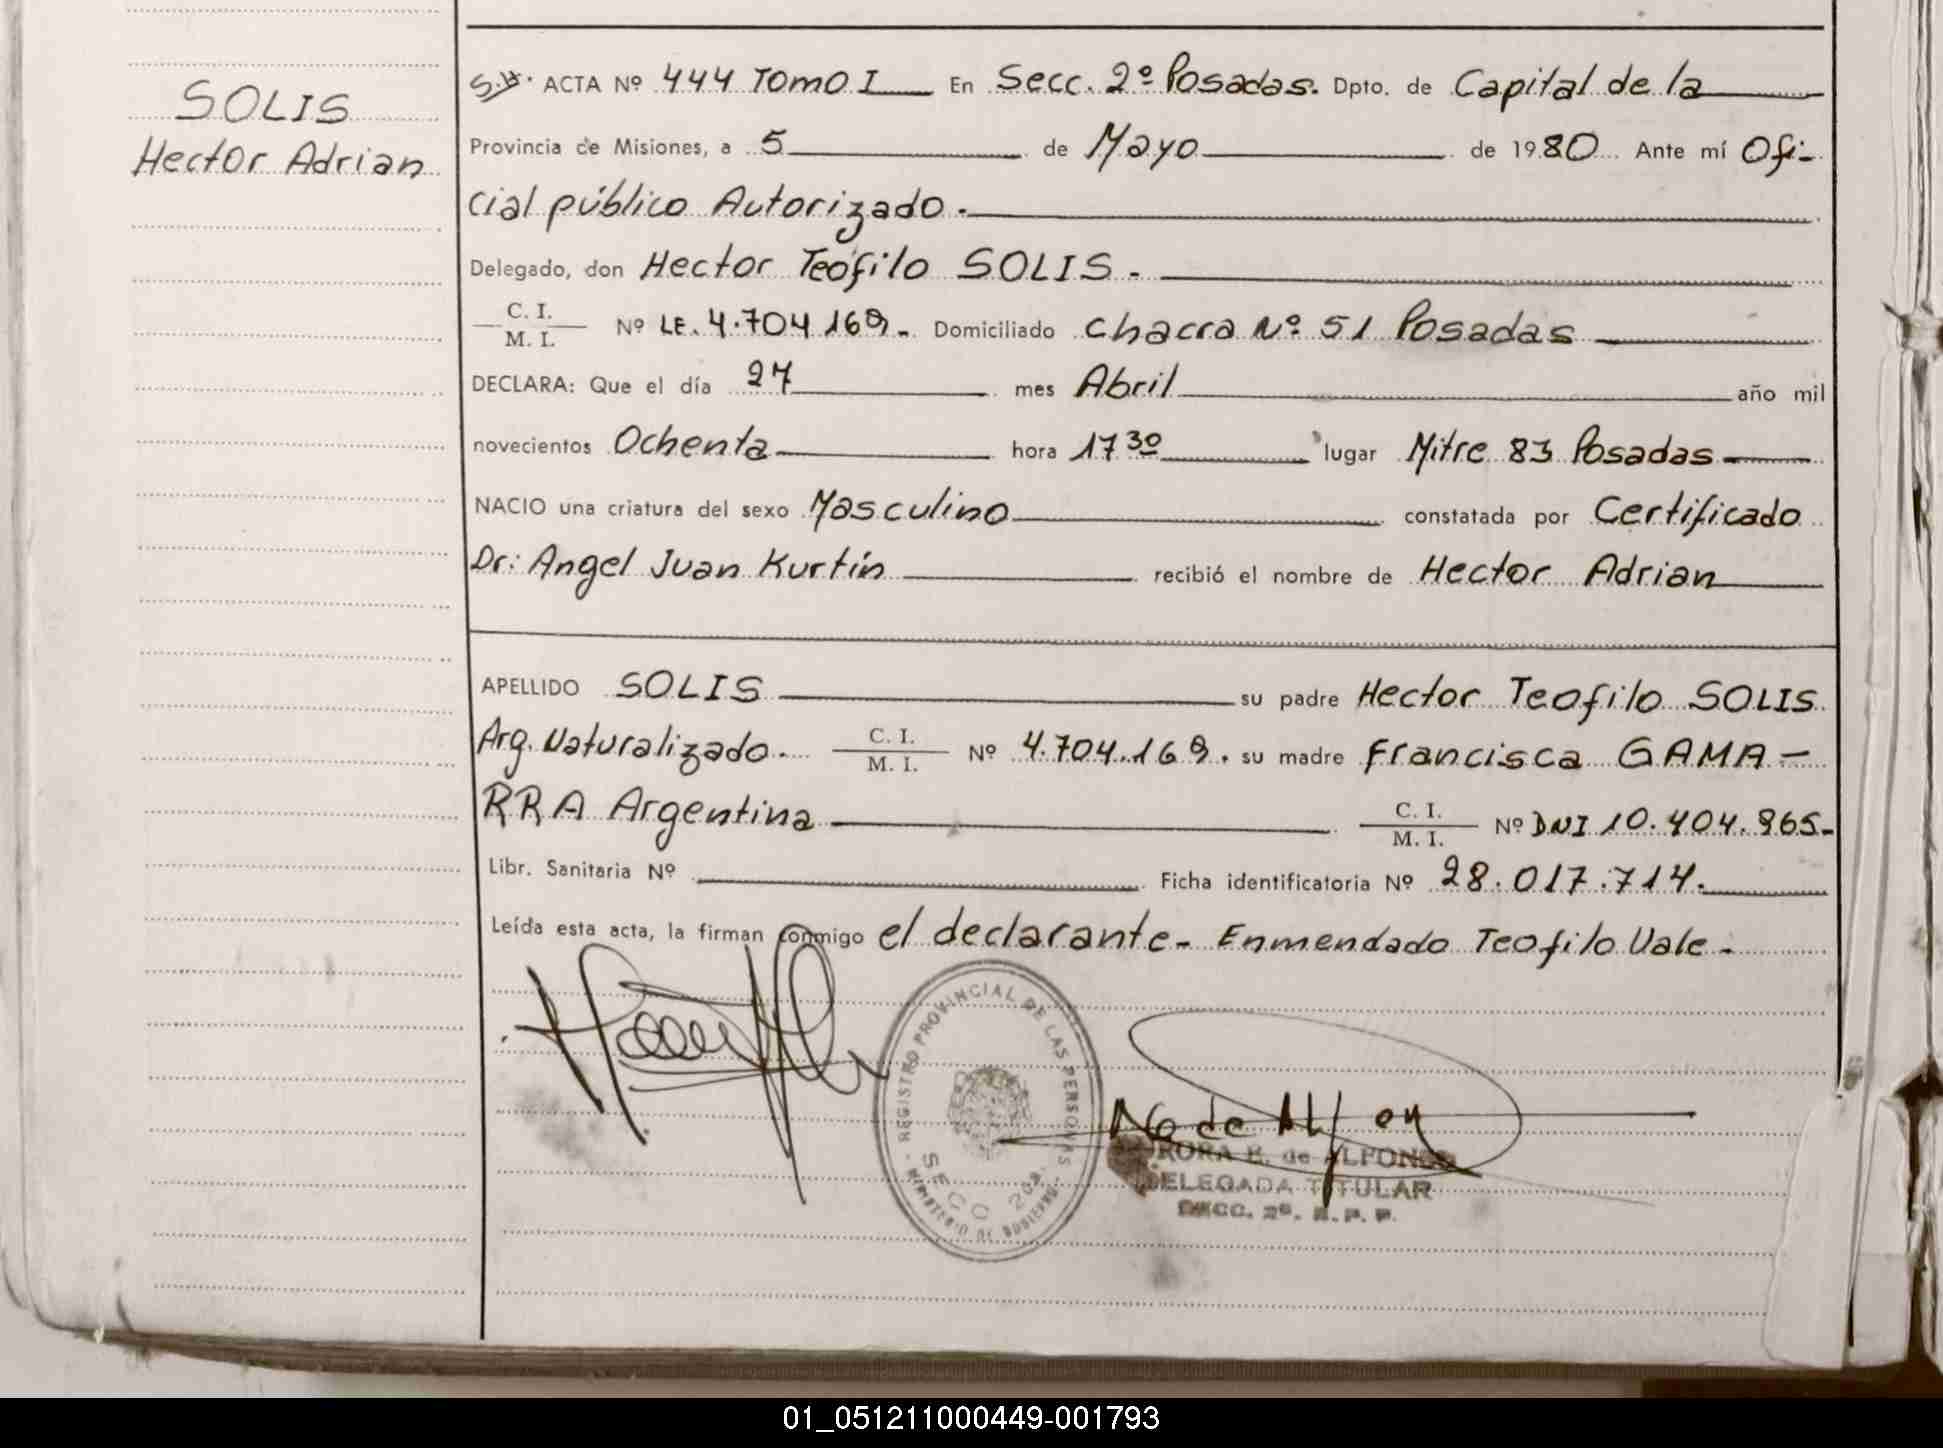 SOLIS
Hector Adrian
S.H. ACTA Nº 444 Tomo I En Secc. 2º Posadas. Dpto. de Capital de la
Provincia de Misiones, a 5 de Mayo de 1980 Ante mí Ofi-
cial público Autorizado.
Delegado, don Hector Teófilo SOLIS.
C. I.
M. I.
Nº LE. 4.704.169. Domiciliado Chacra Nº 51 Posadas
DECLARA: Que el día 27 mes Abril año mil
novecientos Ochenta hora 17 30 lugar Mitre 83 Posadas
NACIO una criatura del sexo Masculino constatada por Certificado
Dr: Angel Juan Kurtin recibió el nombre de Hector Adrian
APELLIDO SOLIS su padre Hector Teofilo SOLIS
Arg. Naturalizado. C. I. M. I. Nº 4.704.169. su madre Francisca GAMA-
RRA Argentina C. I. M. I. Nº DNI 10.404.965.
Libr. Sanitaria Nº Ficha identificatoria Nº 28.017.714.
Leída esta acta, la firman conmigo el declarante- Enmendado Teofilo Vale-
REGISTRO PROVINCIAL DE LAS PERSONAS
SECC 2da.
MINISTERIO DE GOBIERNO
de ALFONSO
DELEGADA TITULAR
SECC. 2ª. R. P. P.
01_051211000449-001793